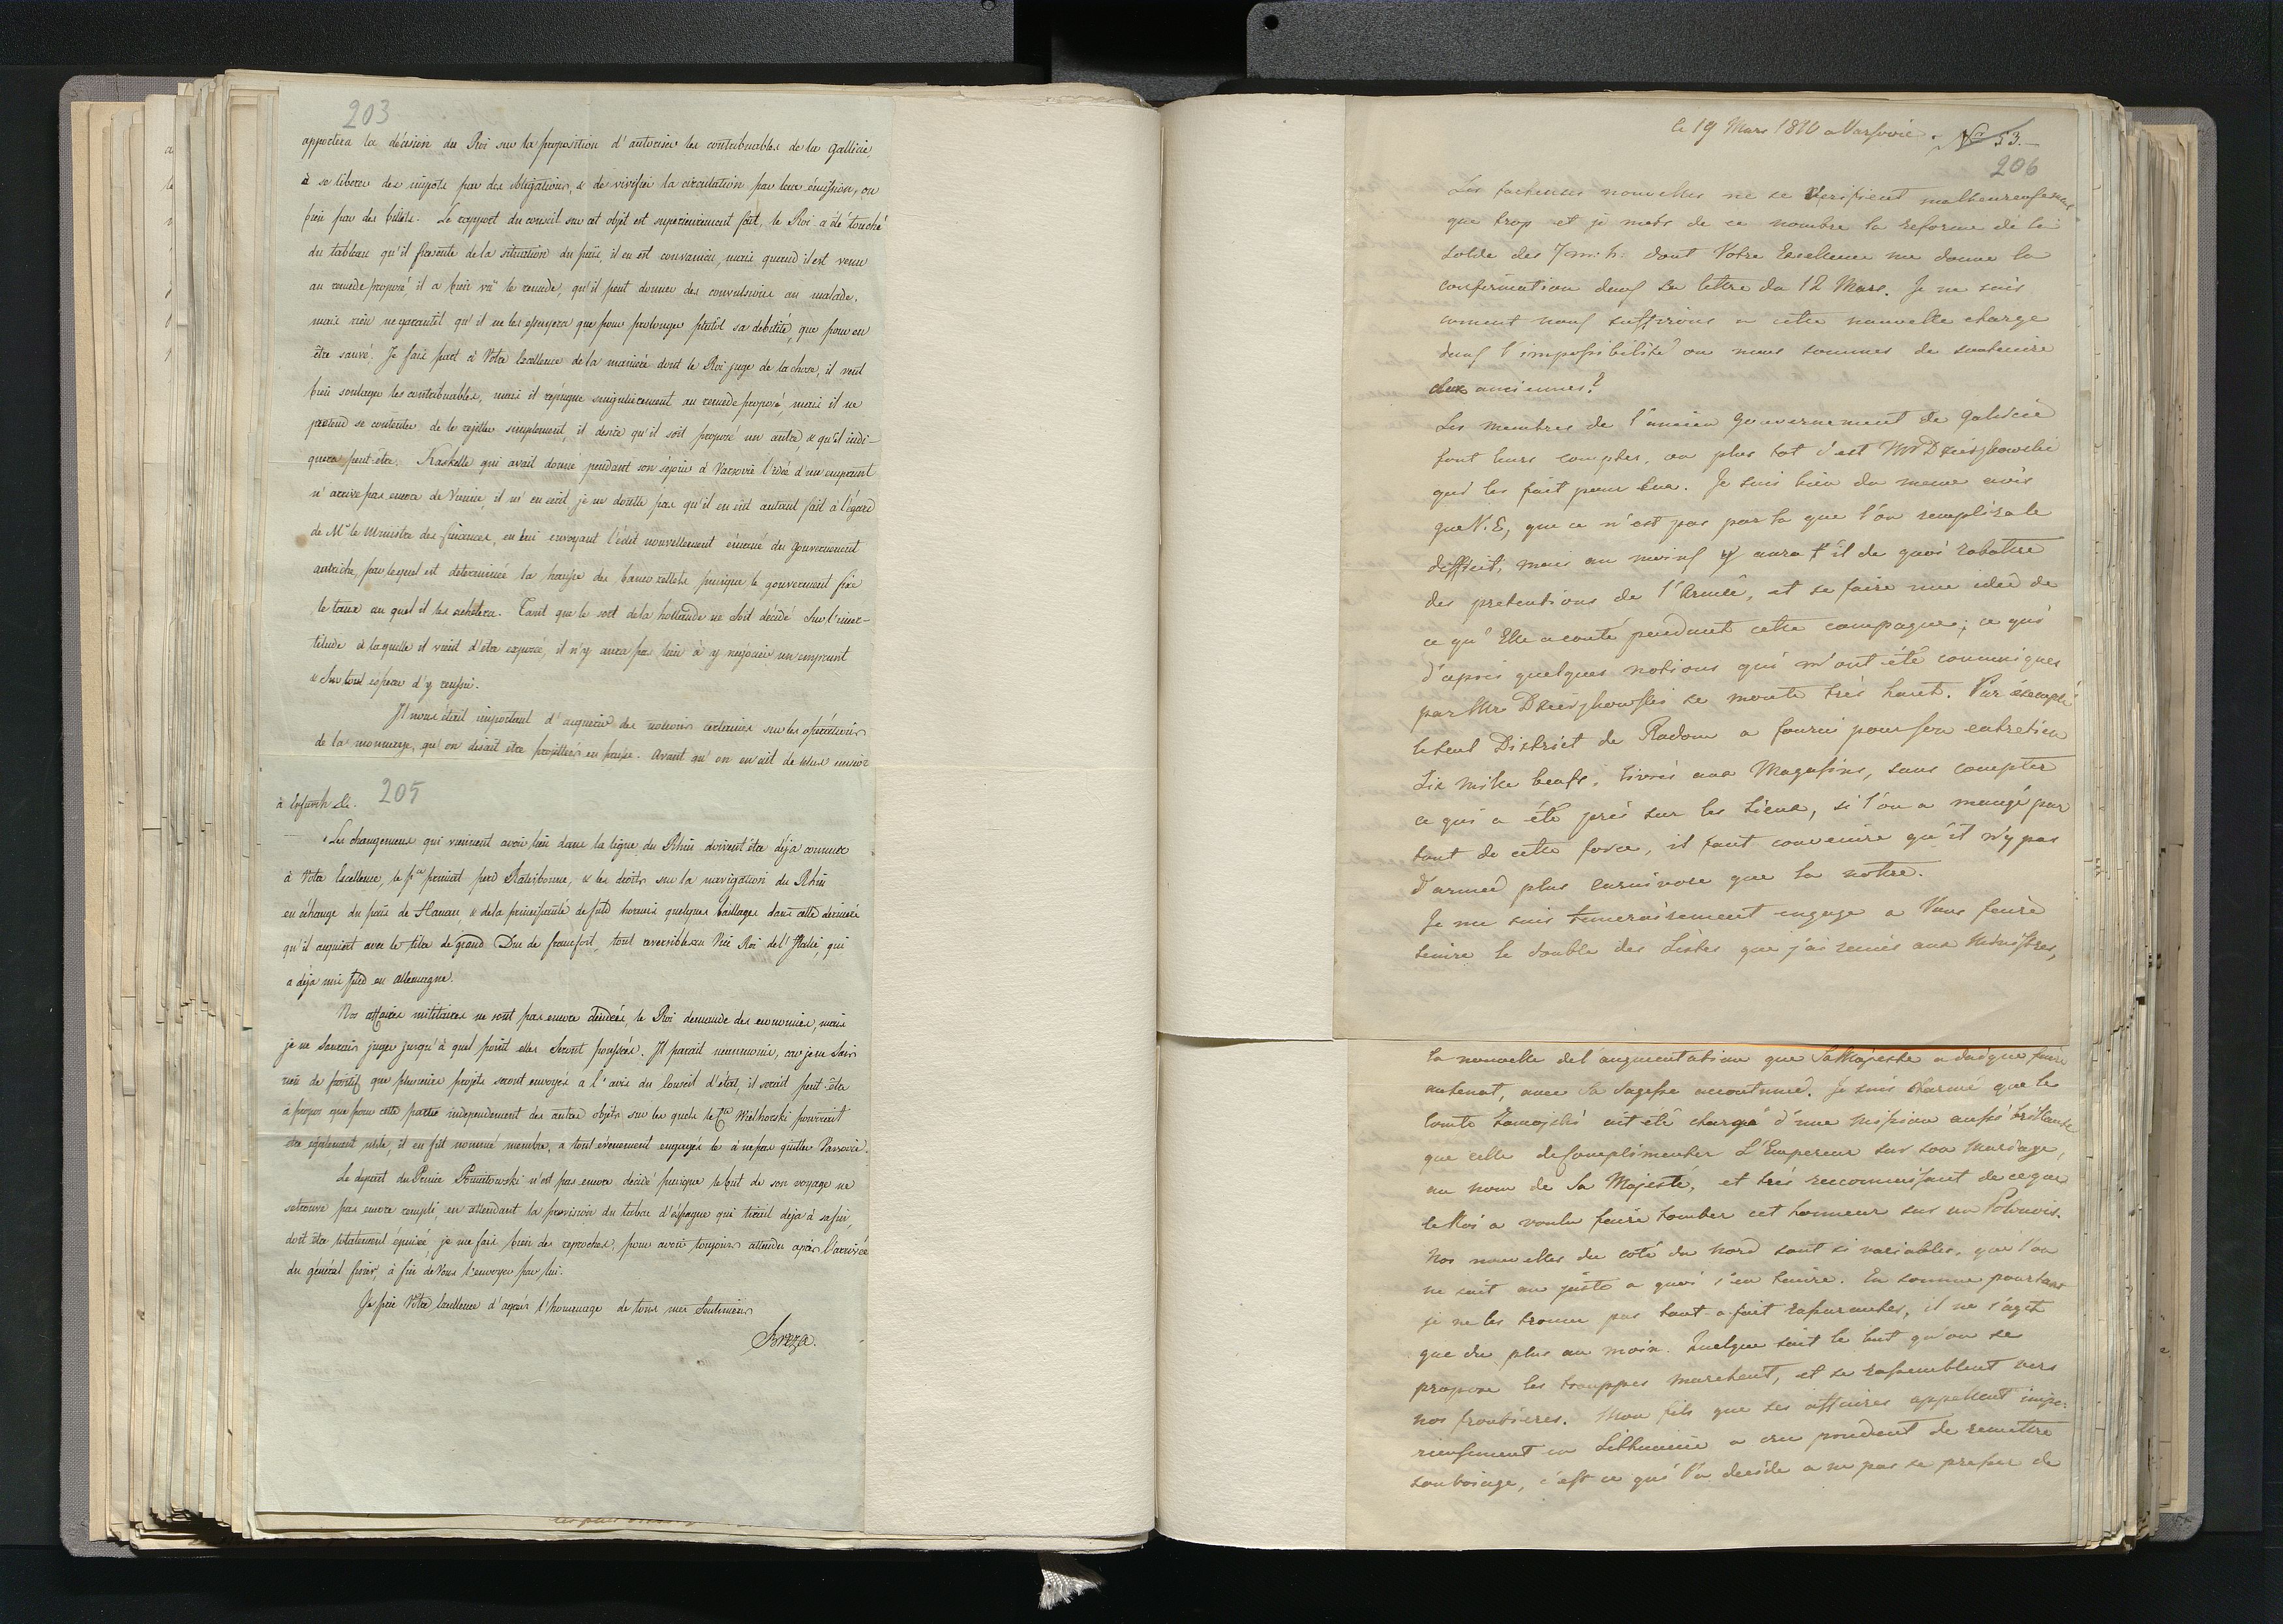 203
apportera la décision du Roi sur la proposition d'autoriser les contribuables de la Gallicie,
à se liberer des impots par des obligations, & de vivifier la circulation par leur émission, ou
bien par des billets. Le rapport du conseil sur cet objet est superieurement fait, le Roi a été touché
du tableau qu'il presente de la situation du païs, il en est convaincu, mais quand il est venu
au remede proposé il a bien vû le remede, qu'il peut donner des convulsions au malade,
mais rien ne garantit qu'il ne les essuyera que pour prolonger plutôt sa debilité, que pour en
être sauvé. Je fais part à Votre Excellence de la manière dont le Roi juge de la chose, il veut
bien soulager les contribuables, mais il répugne singulièrement au remede proposé, mais il ne
pretend se contenter de le rejetter simplement, il desire qu'il soit proposé un autre, & qu'il indi-
quera peut-être. Kaskelle qui avait donné pendant son séjour à Varsovie l'idée d'un emprunt
n'arrive pas encore de Vienne, il m'en écrit je ne doutte pas qu'il en ait autant fait à l'égard
de Mr le Ministre des finances, en lui envoyant l'édit nouvellement émané du Gouvernement
autriche, par lequel est determinée la hausse des banco zettels puisque le gouvernement fixe
le taux au quel il les achetera. Tant que le sort de la hollande ne soit décidé sur l'incer-
titude à laquelle il vient d'être exposé, il n'y aura pas lieu à y negocier un emprunt
& sur tout espérer d'y reussir.
Il nous était important d'acquerir des notions certaines sur les opérations
de la monnaye, qu'on disait être projettées en prusse. Avant qu'on en ait de plus
205
à Erfurth &c.
Les changemens qui viennent avoir lieu dans la ligue du Rhin doivent être déja connus
à Votre Excellence, le pce primat perd Ratisbonne, & les droits sur la navigation du Rhin
en échange du païs de Hanau & de la principauté de fuld hormis quelques baillages dans cette derniere
qu'il acquiert avec le titre de grand Duc de francfort, tout reversible au Vice Roi de l'Italie, qui
a déja mis pied en allemagne.
Nos affaires militaires ne sont pas encore decidées, le Roi demande des economies, mais
je ne saurais juger jusqu'à quel point elles seront poussées. Il parait neanmoins, car je ne sais
rien de positif que plusieurs projets seront envoyés a l'avis du Conseil d'état, il serait peut être
à propos que pour cette partie independement des autres objets sur les quels le Cte Wielhorski pourrait
être egalement utile, il en fut nommé membre, a tout evenement engagés le à ne pas quitter Varsovie.
Le depart du Prince Poniatowski n'est pas encore decidé puisque le but de son voyage ne
se trouve pas encore rempli, en attendant la provision du tabac d'espagne qui tirait deja à sa fin,
doit être totalement épuisée, je me fais bien des reproches, pour avoir toujours attendu après l'arrivée
du général fiszer, à fin de Vous l'envoyer par lui.
Je prie Votre Excellence d'agréer l'hommage de tous mes Sentimens
Breza.
le 19 Mars 1810 a Varsovie. No 53.
206
Les facheuses nouvelles ne se verifient malheureusement
que trop et je mets de ce nombre la reforme de la
solde des 7 m: h: dont Votre Excellence me donne la
confirmation dans sa lettre du 12 Mars. Je ne sais
coment nous suffirons a cette nouvelle charge
dans l'impossibilité ou nous sommes de soutenire
les anciennes?
Les membres de l'ancien Gouvernement de Galicie
font leurs comptes, ou plus tot c'est Mr Dzieszkowski
qui les fait pour eux. Je suis bien du meme avis
que V. E, que ce n'est pas par la que l'on remplira le
defficit, mais au moins y aura t'il de quoi rabattre
des pretentions de l'Armée, et se faire une idée de
ce qu'Elle a couté pendant cette campagne; ce qui
d'apres quelques notions qui m'ont été comuniques
par Mr Dzieszkowski se monte très haut. Par exemple
le seul District de Radom a fourni pour son entretien
dix mille beufs, livrés aux Magasins, sans compter
ce qui a été pris sur les lieux, si l'on a mangé par
tout de cette force, il faut convenire qu'il n'y pas
d'armée plus carnivore que la notre.
Je me suis temerairement engagé a Vous faire
tenire le double des Listes que j'ai remis aux Ministres,
la nouvelle de l'augmentation que Sa Majesté a daigné faire
au Senat, avec sa sagesse accoutumée. Je suis charmé que le
Comte Zamojski ait été chargé d'une mission aussi brillante
que celle de complimenter L'Empereur sur son Mariage,
au nom de Sa Majesté, et très reconnoissant de ce que
le Roi a voulu faire tomber cet honneur sur un Polonois.
Nos nouvelles du coté du Nord sont si variables, que l'on
ne sait au juste a quoi s'en tenire. En somme pourtant
je ne les trouve pas tout a fait rassurantes, il ne s'agit
que du plus au moin. Quelque soit le but qu'on se
propose les trouppes marchent, et se rassemblent vers
nos frontieres. Mon fils que ses affaires appellent impe-
rieusement en Lithuanie a cru prudent de remettre
son voiage, c'est ce qui l'a decidé a ne pas se presser de